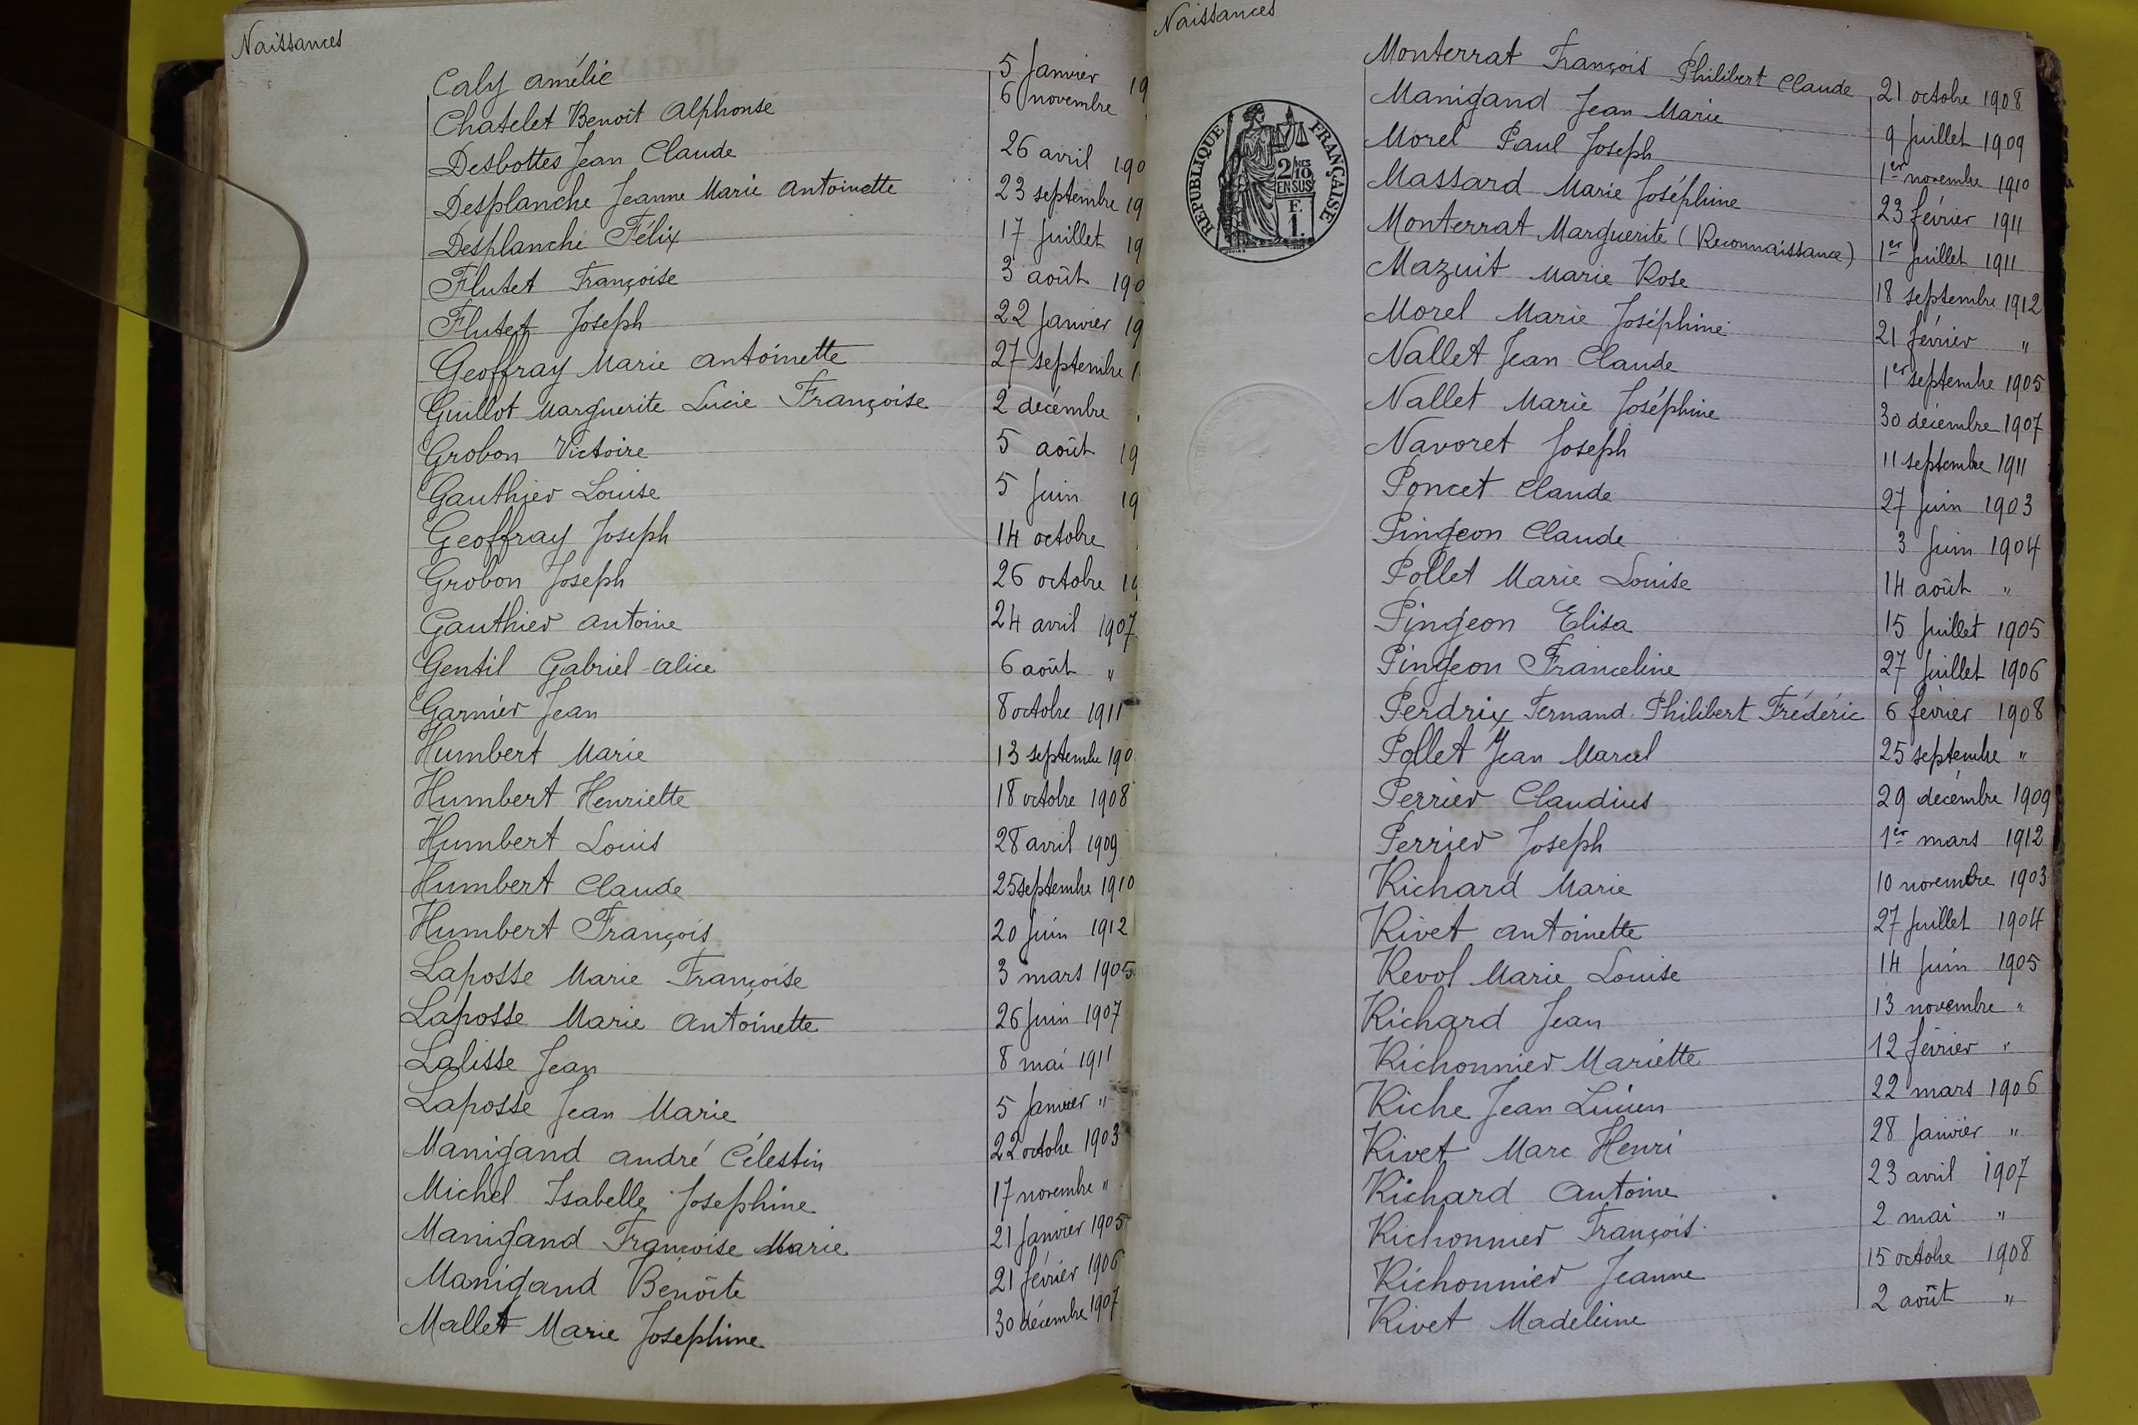 Naissances
Caly Amélie 5 Janvier 19
Chatelet Benoît Alphonse 6 novembre
Desbottes Jean Claude 26 avril 190
Desplanche Jeanne Marie Antoinette 23 septembre 19
Desplanche Félix 17 Juillet 19
Flutet Françoise 3 août 190
Flutet Joseph 22 Janvier 19
Geoffray Marie Antoinette 27 septembre 1
Guillot Marguerite Lucie Françoise 2 décembre
Grobon Victoire 5 août 19
Gauthier Louise 5 Juin 19
Geoffray Joseph 14 octobre
Grobon Joseph 26 octobre 19
Gauthier Antoine 24 avril 1907
Gentil Gabriel Alice 6 août "
Garnier Jean 8 octobre 1911
Humbert Marie 13 septembre 190
Humbert Henriette 18 octobre 1908
Humbert Louis 28 avril 1909
Humbert Claude 25 septembre 1910
Humbert François 20 Juin 1912
Laposse Marie Françoise 3 mars 1905
Laposse Marie Antoinette 26 Juin 1907
Lalisse Jean 8 mai 1911
Laposse Jean Marie 5 Janvier "
Manigand André Célestin 22 octobre 1903
Michel Isabelle Josephine 17 novembre "
Manigand Françoise Marie 21 Janvier 1905
Manigand Benoîte 21 février 1906
Mallet Marie Josephine 30 décembre 1907
Naissances
RÉPUBLIQUE FRANÇAISE
2/10 EN SUS
F.
1.
Monterrat François Philibert Claude 21 octobre 1908
Manigand Jean Marie 9 Juillet 1909
Morel Paul Joseph 1er novembre 1910
Massard Marie Joséphine 23 février 1911
Monterrat Marguerite (Reconnaissance) 1er Juillet 1911
Mazuit Marie Rose 18 septembre 1912
Morel Marie Joséphine 21 février "
Nallet Jean Claude 1er septembre 1905
Nallet Marie Joséphine 30 décembre 1907
Navoret Joseph 11 septembre 1911
Poncet Claude 27 Juin 1903
Pingeon Claude 3 Juin 1904
Pollet Marie Louise 14 août "
Pingeon Elisa 15 Juillet 1905
Pingeon Franceline 27 Juillet 1906
Perdrix Fernand Philibert Frédéric 6 février 1908
Pollet Jean Marcel 25 septembre "
Perrier Claudius 29 décembre 1909
Perrier Joseph 1er mars 1912
Richard Marie 10 novembre 1903
Rivet Antoinette 27 Juillet 1904
Revol Marie Louise 14 Juin 1905
Richard Jean 13 novembre "
Richonnier Mariette 12 février "
Riche Jean Lucien 22 mars 1906
Rivet Marc Henri 28 Janvier "
Richard Antoine 23 avril 1907
Richonnier François 2 mai "
Richonnier Jeanne 15 octobre 1908
Rivet Madeleine 2 août "